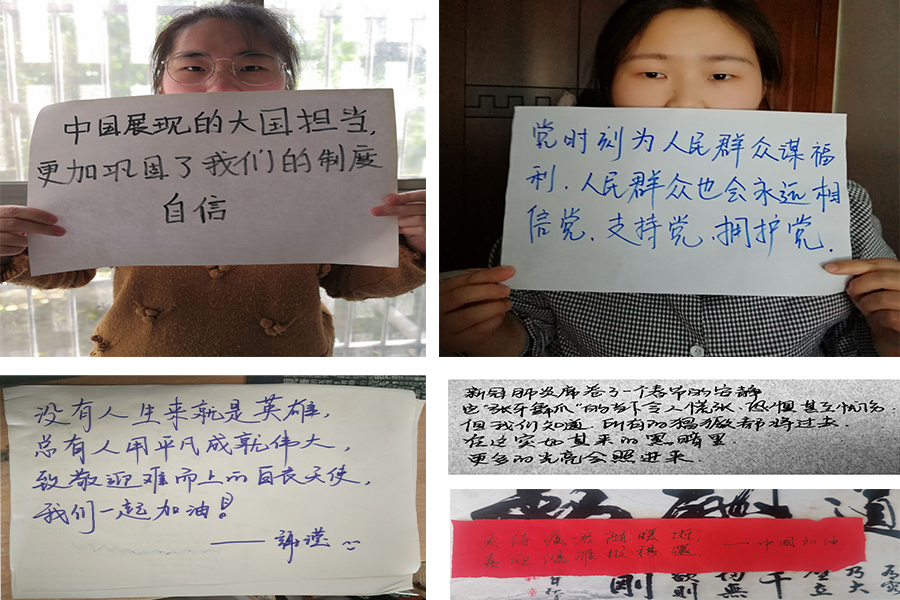 中国展现的大国担当,
更加巩固了我们的制度
自信
党时刻为人民群众谋福
利.人民群众也会永远相
信党.支持党.拥护党.
没有人生来就是英雄,
总有人用平凡成就伟大,
致敬迎难而上的白衣天使,
我们一起加油!
——谢滢
新冠肺炎席卷了一个春节的安静
它“张牙舞爪”的给令人慌张、恐惧甚至恼怒
但我们知道.所有的
都将过去.
在这突如其来的黑暗里.
更多的光亮会照进来.
——中国加油
道
刚
乃大
壁立
千